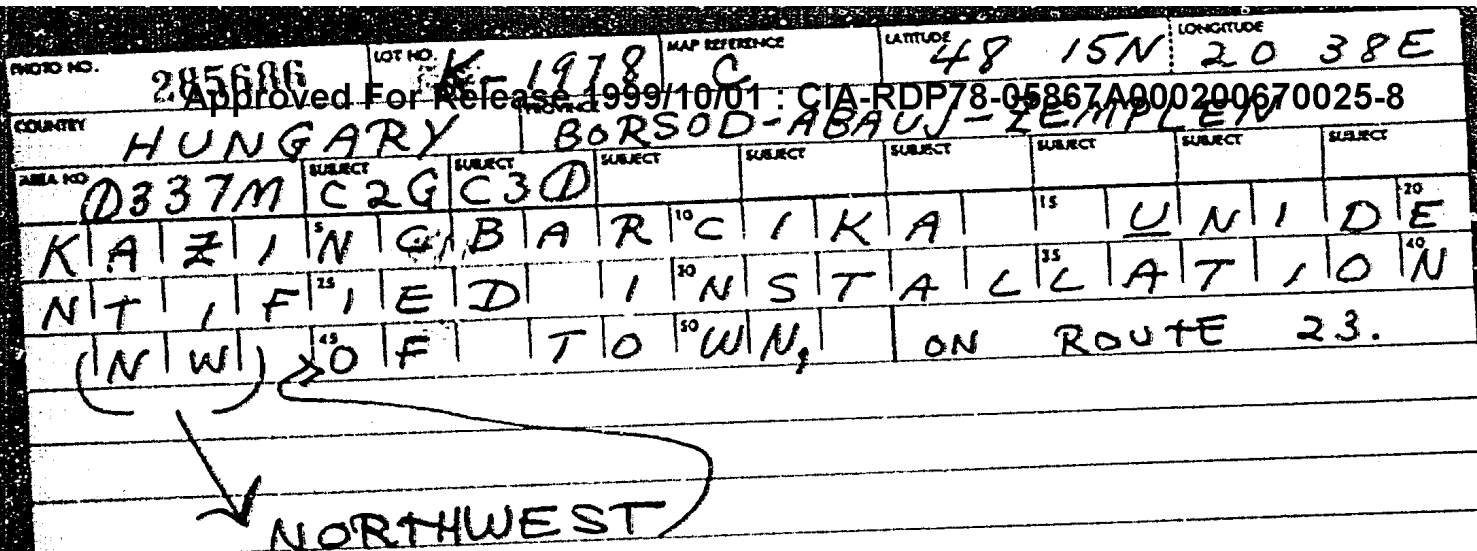 PHOTO NO. 285686 LOT NO. K-1978 MAP REFERENCE C LATITUDE 48 15N LONGITUDE 20 38E
Approved For Release 1999/10/01 : CIA-RDP78-05867A000200670025-8
COUNTRY HUNGARY BORSOD-ABAUJ-ZEMPLEN
AREA NO. 0337M SUBJECT C2G SUBJECT C30 SUBJECT SUBJECT SUBJECT SUBJECT SUBJECT SUBJECT
KAZINGBARCIKA UNIDE
5 10 15 20
NTIFIED INSTALLATION
25 30 35 40
(NW) OF TOWN, ON ROUTE 23.
45 50
NORTHWEST